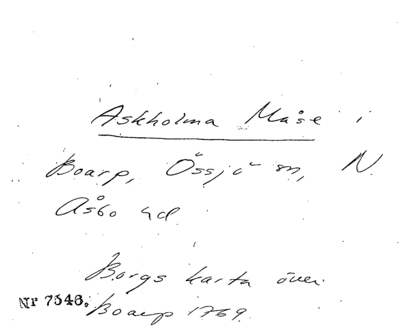 Askholma Måse i
Boarp, Össjö sn, N.
Åsbo hd.
Borgs karta över
Nr 7546. Boarp 1769.